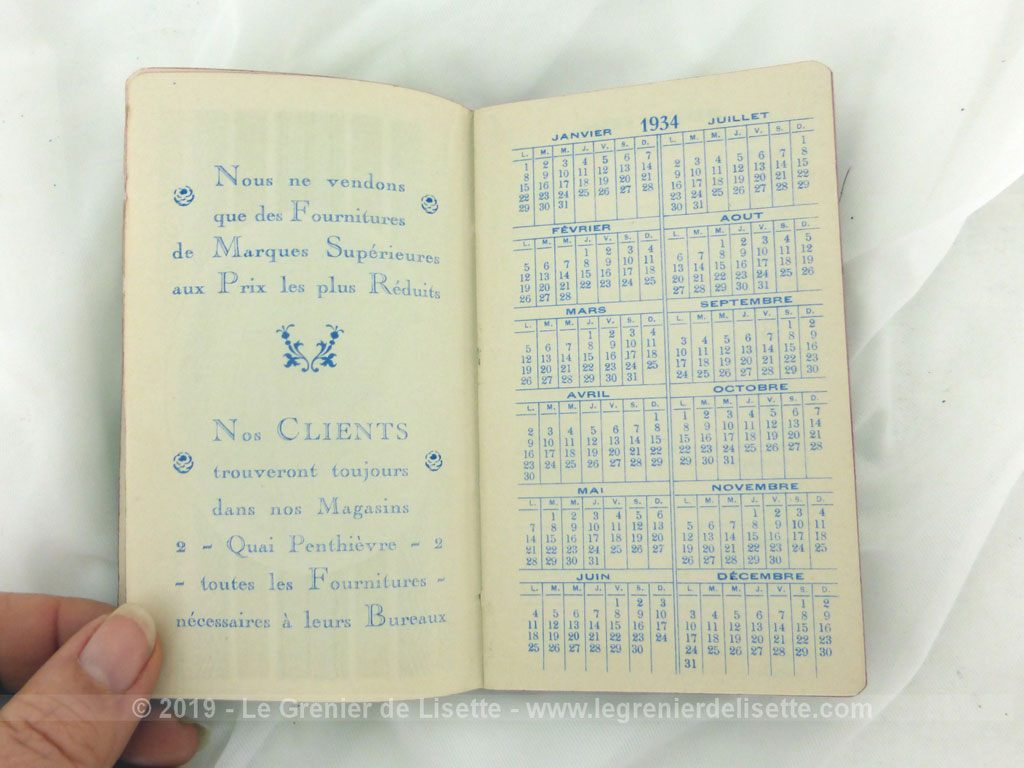 Nous ne vendons
que des Fournitures
de Marques Supérieures
aux Prix les plus Réduits
Nos CLIENTS
trouveront toujours
dans nos Magasins
2 - Quai Penthièvre - 2
- toutes les Fournitures -
nécessaires à leurs Bureaux
1934
JANVIER
L. M. M. J. V. S. D.
1 2 3 4 5 6 7
8 9 10 11 12 13 14
15 16 17 18 19 20 21
22 23 24 25 26 27 28
29 30 31
FÉVRIER
L. M. M. J. V. S. D.
1 2 3 4
5 6 7 8 9 10 11
12 13 14 15 16 17 18
19 20 21 22 23 24 25
26 27 28
MARS
L. M. M. J. V. S. D.
1 2 3 4
5 6 7 8 9 10 11
12 13 14 15 16 17 18
19 20 21 22 23 24 25
26 27 28 29 30 31
AVRIL
L. M. M. J. V. S. D.
1
2 3 4 5 6 7 8
9 10 11 12 13 14 15
16 17 18 19 20 21 22
23 24 25 26 27 28 29
30
MAI
L. M. M. J. V. S. D.
1 2 3 4 5 6
7 8 9 10 11 12 13
14 15 16 17 18 19 20
21 22 23 24 25 26 27
28 29 30 31
JUIN
L. M. M. J. V. S. D.
1 2 3
4 5 6 7 8 9 10
11 12 13 14 15 16 17
18 19 20 21 22 23 24
25 26 27 28 29 30
JUILLET
L. M. M. J. V. S. D.
1
2 3 4 5 6 7 8
9 10 11 12 13 14 15
16 17 18 19 20 21 22
23 24 25 26 27 28 29
30 31
AOUT
L. M. M. J. V. S. D.
1 2 3 4 5
6 7 8 9 10 11 12
13 14 15 16 17 18 19
20 21 22 23 24 25 26
27 28 29 30 31
SEPTEMBRE
L. M. M. J. V. S. D.
1 2
3 4 5 6 7 8 9
10 11 12 13 14 15 16
17 18 19 20 21 22 23
24 25 26 27 28 29 30
OCTOBRE
L. M. M. J. V. S. D.
1 2 3 4 5 6 7
8 9 10 11 12 13 14
15 16 17 18 19 20 21
22 23 24 25 26 27 28
29 30 31
NOVEMBRE
L. M. M. J. V. S. D.
1 2 3 4
5 6 7 8 9 10 11
12 13 14 15 16 17 18
19 20 21 22 23 24 25
26 27 28 29 30
DÉCEMBRE
L. M. M. J. V. S. D.
1 2
3 4 5 6 7 8 9
10 11 12 13 14 15 16
17 18 19 20 21 22 23
24 25 26 27 28 29 30
31
© 2019 - Le Grenier de Lisette - www.legrenierdelisette.com